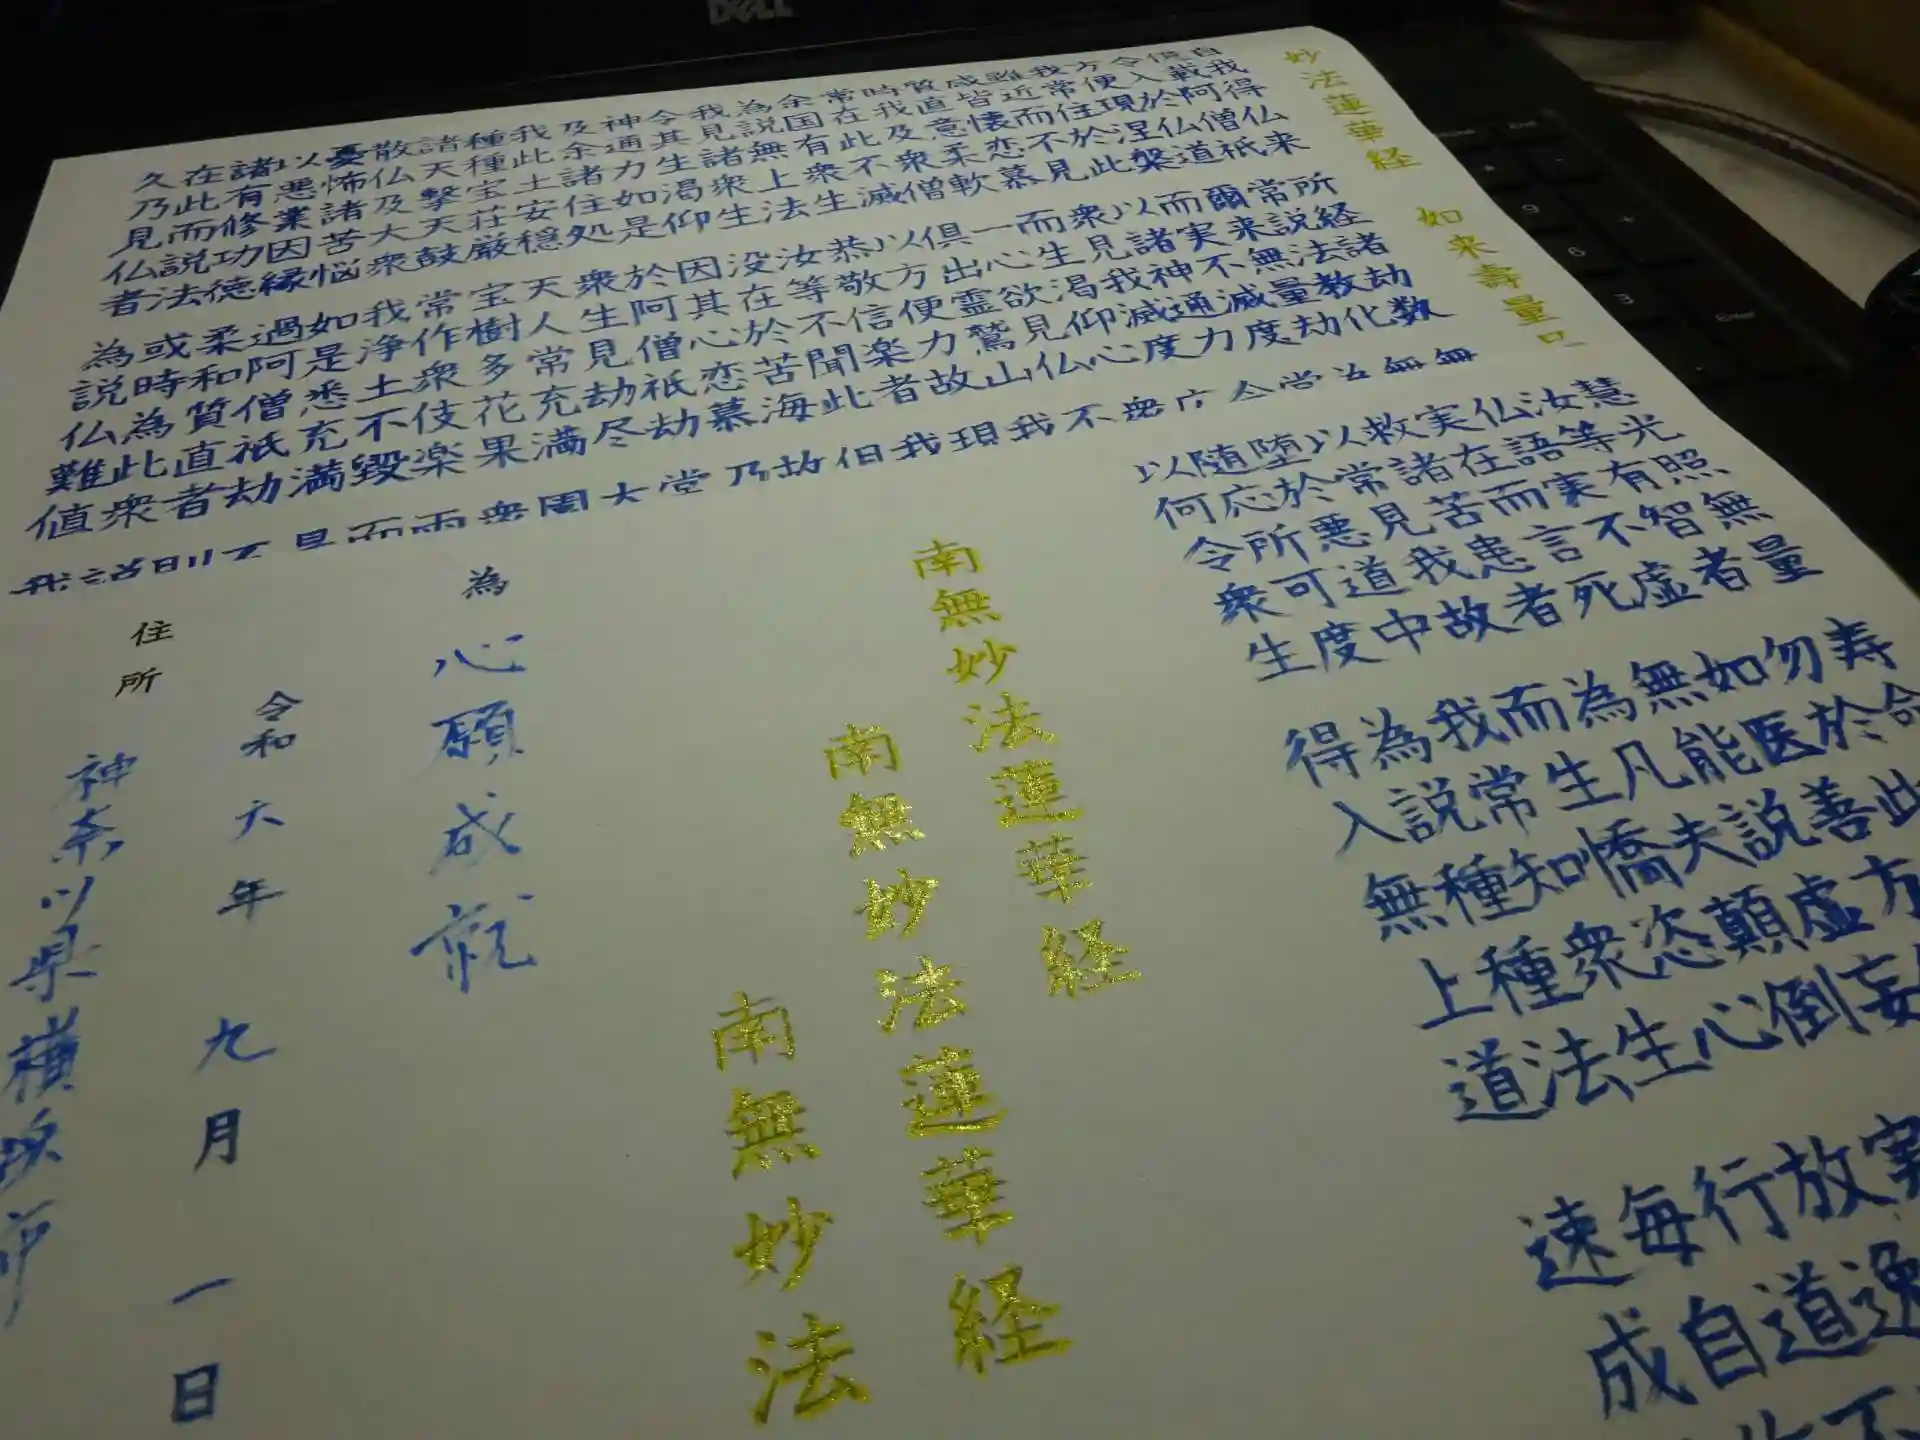 妙法蓮華経
如来壽量
自我得仏来 所経諸劫数 無
億載阿僧祇 常説法教化 無
令入於仏道 爾来無量劫 為
方便現涅槃 而実不滅度 常
我常住於此 以諸神通力 令
難近而不見 衆見我滅度
咸皆懐恋慕 而生渇仰心 衆
質直意柔軟 一心欲見仏 不
時我及衆僧 俱出霊鷲山 我
常在此不滅 以方便力故 現
余国有衆生 恭敬信楽者 我
為説無上法 汝等不聞此 但
我見諸衆生 没在於苦海 故
令其生渇仰 因其心恋慕 乃
神通力如是 於阿僧祇劫
及余諸住処 衆生見劫尽 大
我此土安穏 天人常充満 園
種種宝荘厳 宝樹多花果 衆
諸天撃天鼓 常作衆伎楽 雨
散仏及大衆 我浄土不毀 而
憂怖諸苦悩 如是悉充満
以悪業因縁 過阿僧祇劫 不
諸有修功徳 柔和質直者 則
在此而説法 或時為此衆 説
久乃見仏者 為説仏難値 我
慧光照無量 寿命
汝等有智者 勿於此
仏語実不虚 如医善方
実在而言死 無能説虚妄
救諸苦患者 為凡夫顛倒
以常見我故 而生憍恣心 放逸
堕於悪道中 我常知衆生 行道不
随応所可度 為説種種法 毎自
以何令衆生 得入無上道 速成
南無妙法蓮華経
南無妙法蓮華経
南無妙法
為 心願成就
令和六年九月一日
住所 神奈川県横浜市
DELL